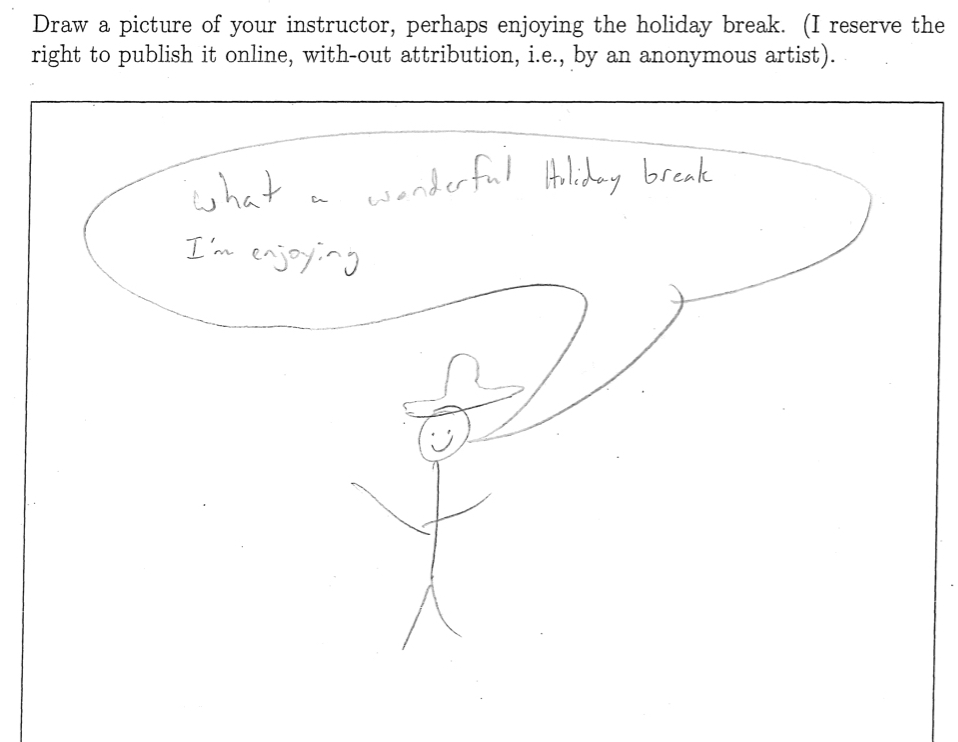 Draw a picture of your instructor, perhaps enjoying the holiday break. (I reserve the
right to publish it online, with-out attribution, i.e., by an anonymous artist).
What a wonderful Holiday break
I'm enjoying